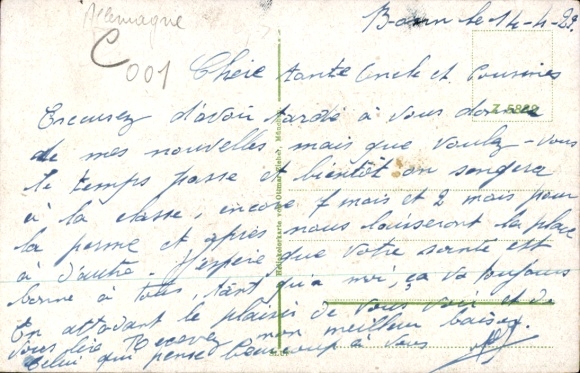 Allemagne
C 001
Bonn le 14-4-29.
Chère tante Oncle et Cousines
Excusez d'avoir tardé à vous donner
de mes nouvelles mais que voulez-vous
le temps passe et bientôt on songera
à la classe, encore 7 mois et 2 mois pour
la perme et après nous laisseront la place
à d'autre. J'espère que votre santé est
bonne à tous, tant qu'a moi, ça va toujours
En attendant le plaisir de vous voir et de
vous lire Recevez mon meilleur baiser.
Celui qui pense beaucoup à vous